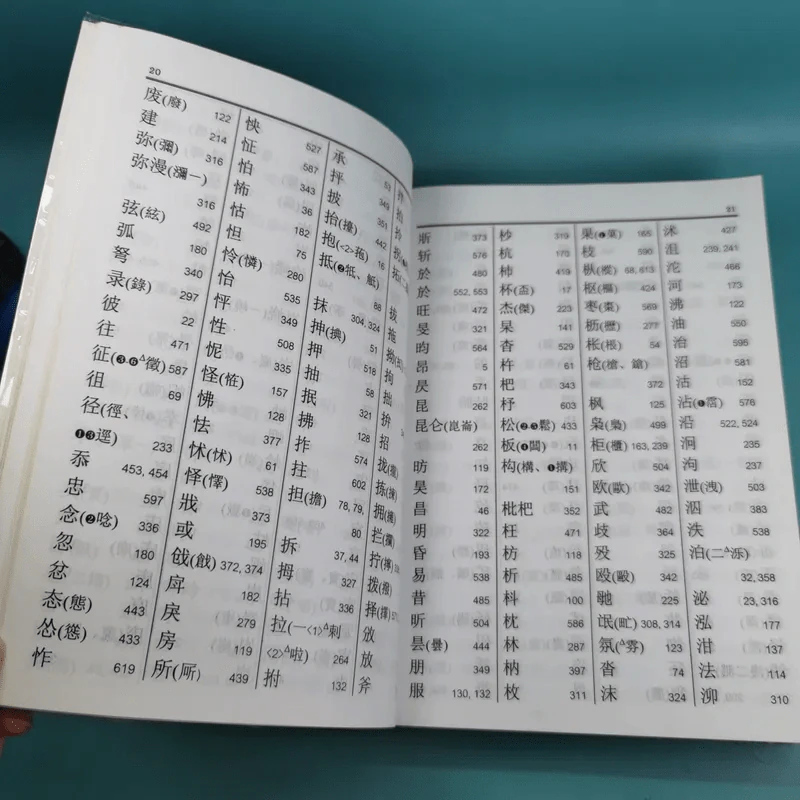 20
废(廢) 122
建 214
弥(彌) 316
弥漫(瀰一)
316
弦(絃) 492
弧 180
弩 340
录(錄) 297
彼 22
往 471
征(❸-❻△徵) 587
徂 69
径(徑、
❶❸逕) 233
忝 453, 454
忠 597
念(❷唸) 336
忽 180
忿 124
态(態) 443
怂(慫) 433
怍 619
怏 527
怔 587
怕 343
怖 36
怙 182
怛 75
怜(憐) 280
怡 535
怦 349
性 508
怩 335
怪(恠) 157
怫 128
怯 377
怵(怵) 61
怿(懌) 538
戕 373
或 195
戗(戧) 372, 374
戽 182
戾 279
房 119
所(所) 439
承 53
抨 349
披 351
抬(擡) 442
抱(<2>菢) 16
抵(❷牴、觝)
88
抹 304, 324
抻(捵) 51
押 518
抽 58
抿
拂 128
拃 574
拄 602
担(擔) 78, 79,
80
拆 37, 44
拇 327
拈 336
拉(一<1>△剌
<2>△啦) 264
拊 132
拎
拔
拖
拗
拘
拙
拚
招
拢(攏
拣(揀
拥(擁
拦(攔
拧(擰)
拨(撥)
择(擇)
放
放
斧
21
斨 373
斩 576
於 460
於 552, 553
旺 472
旻 321
昀 564
昂 5
昃
昆 262
昆仑(崑崙)
262
昉 119
昊 172
昌 46
明 322
昏 193
易 538
昔 485
昕 504
昙(曇) 444
朋 349
服 130, 132
杪 319
杭 170
柿 419
杯(盃) 17
杰(傑) 223
杲 141
杳 529
杵 61
杷 343
杼 603
松(❷-❺鬆) 433
板(❶闆) 11
构(構、❶搆)
151
枇杷 352
枉 471
枋 118
析 485
枓 100
枕 586
林 287
枘 397
枚 311
果(❻菓) 165
枝 590
枞(樅) 68, 613
枢(樞) 424
枣(棗) 569
枥(櫪) 277
枨(棖) 54
枪(槍、鎗)
372
枫 125
枭(梟) 499
柜(櫃) 163, 239
欣 504
欧(歐) 342
武 482
歧 364
殁 325
殴(毆) 342
毑 225
氓(甿) 308, 314
氛(△雰) 123
沓 74
沫 324
沭 427
沮 239, 241
沱 466
河 173
沸 122
油 550
治 595
沼 581
沽 152
沾(❶霑) 576
沿 522, 524
泂 235
泃 237
泄(洩) 503
泗
泆 538
泊(二△泺)
32, 358
泌 23, 316
泓 177
泔 137
法 114
泖 310